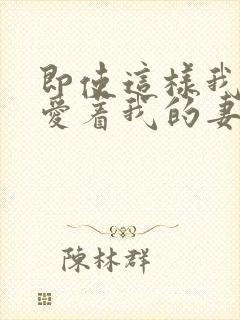 即使這樣我
愛着我的妻
陳林群